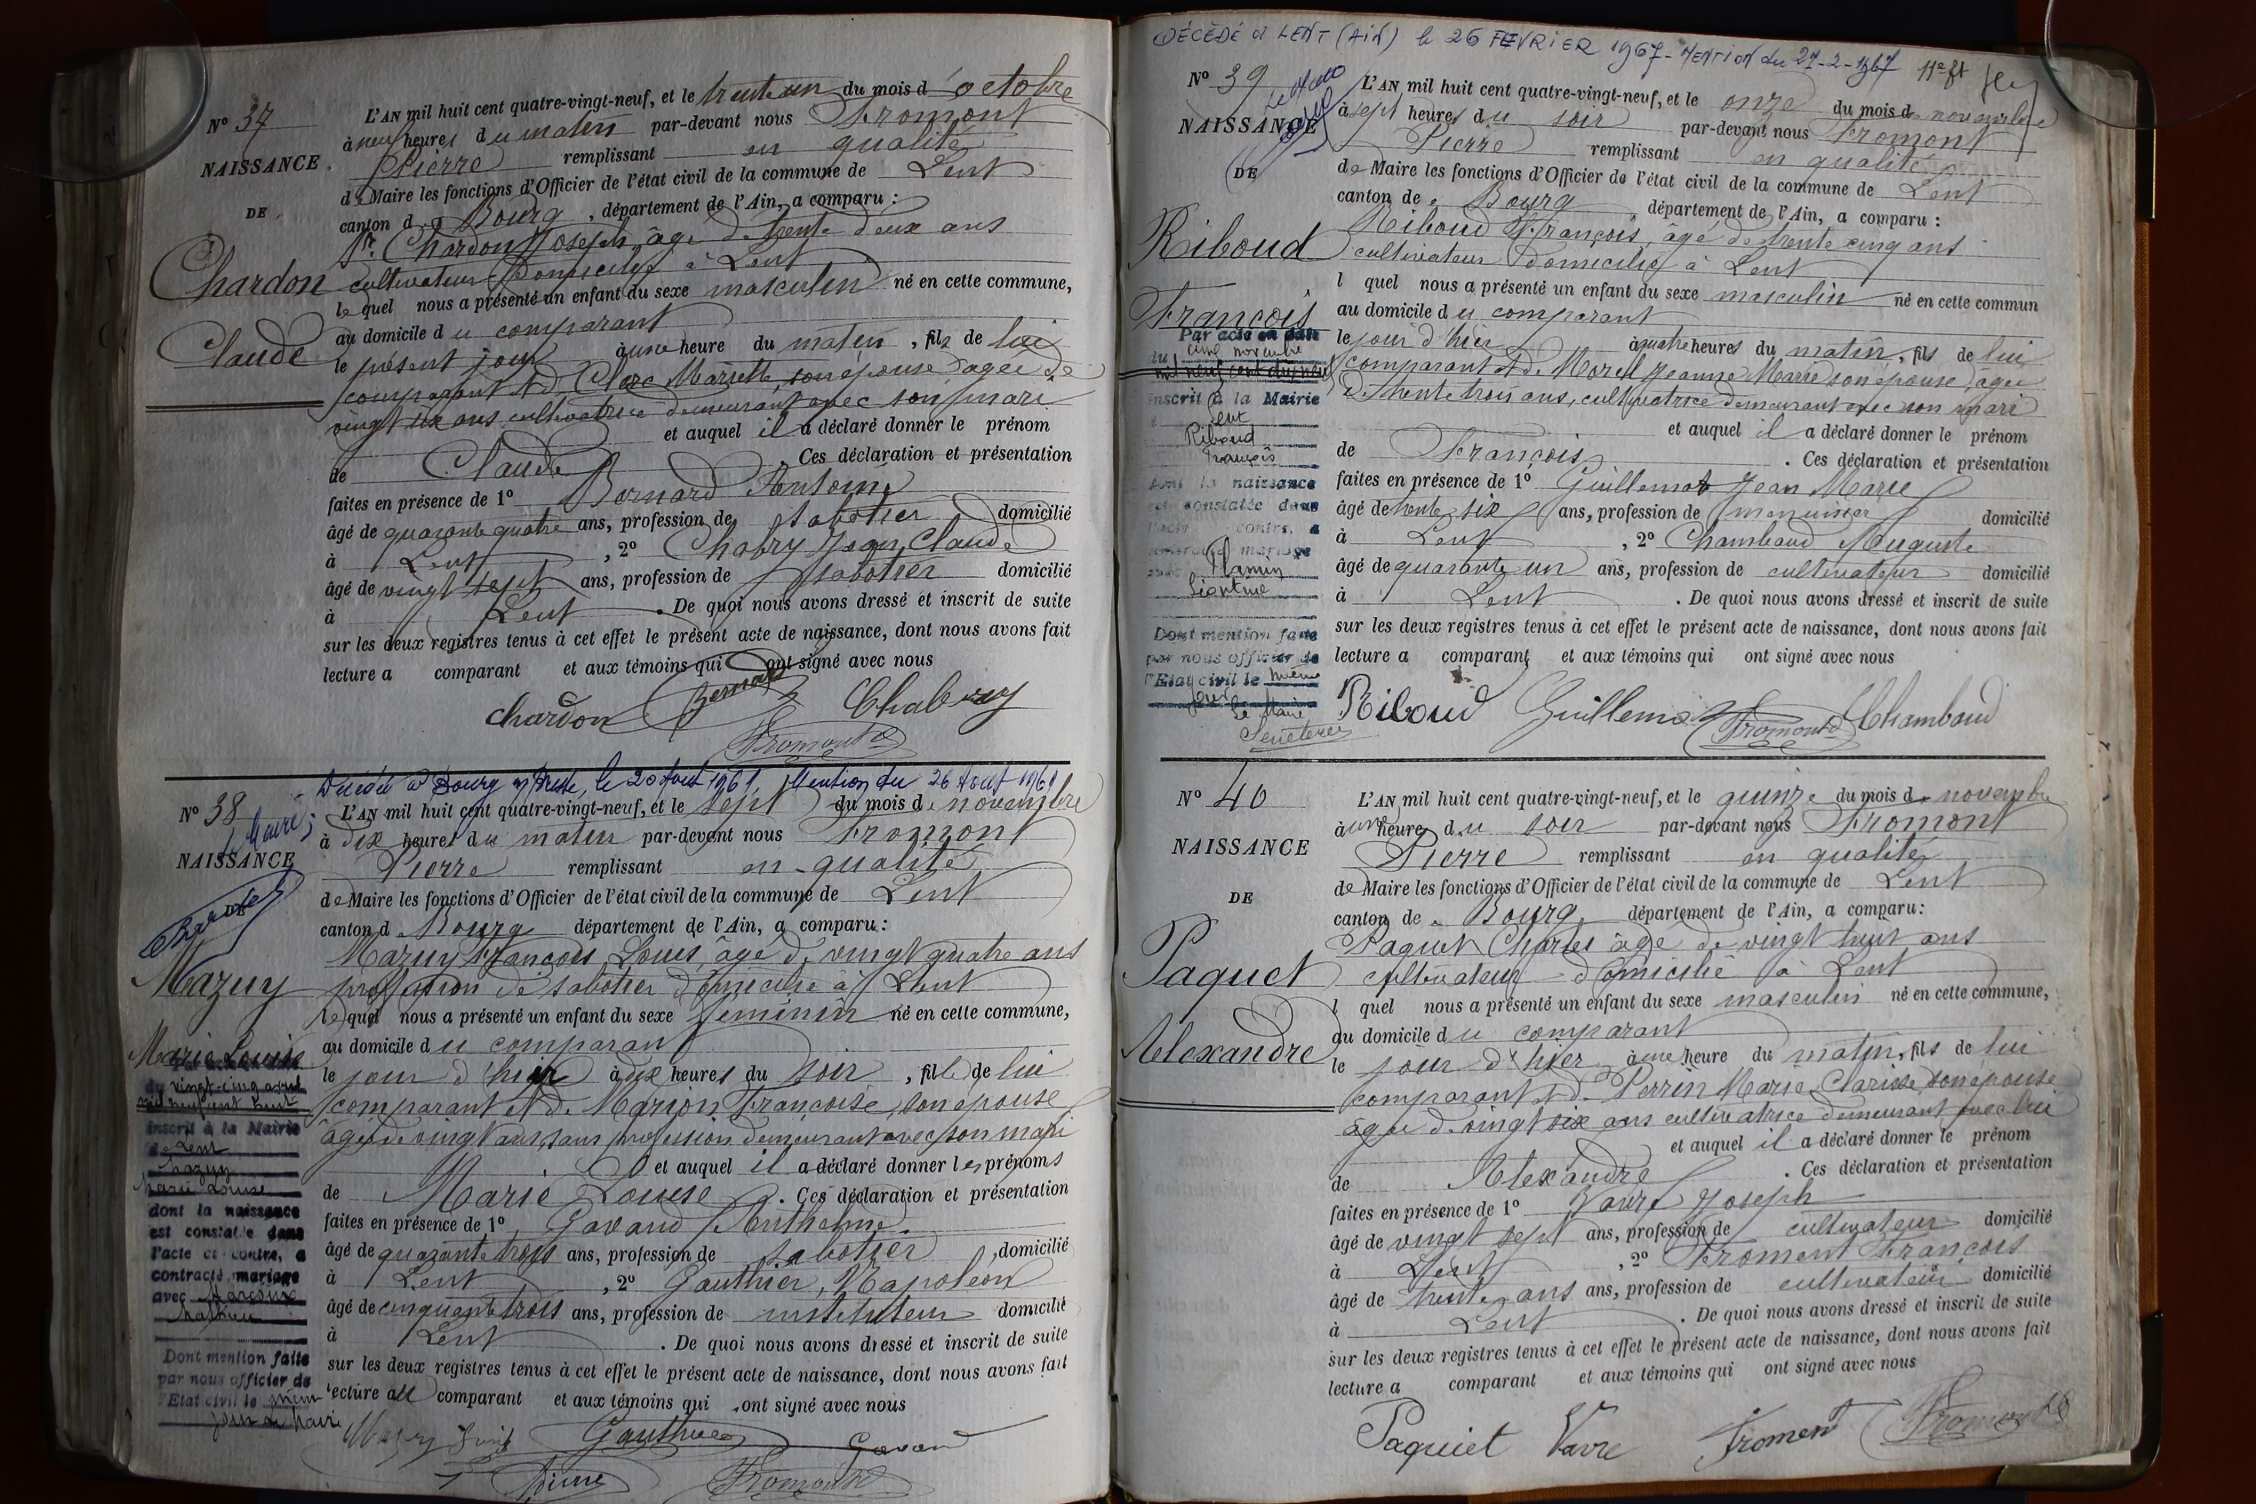 N° 37
NAISSANCE
DE
Chardon
Claude
L'AN mil huit cent quatre-vingt-neuf, et le trente un du mois d'octobre
à neuf heures du matin par-devant nous Fromont
Pierre remplissant en qualité
de Maire les fonctions d'Officier de l'état civil de la commune de Lent
canton de Bourg, département de l'Ain, a comparu :
Sr. Chardon Joseph, âgé de trente deux ans
cultivateur domicilié à Lent
lequel nous a présenté un enfant du sexe masculin né en cette commune,
au domicile du comparant
le présent jour à une heure du matin, fils de lui
comparant et de Clerc Mariette, son épouse âgée de
vingt six ans cultivatrice demeurant avec son mari
et auquel il a déclaré donner le prénom
de Claude. Ces déclaration et présentation
faites en présence de 1° Bernard Antoine
âgé de quarante quatre ans, profession de sabotier domicilié
à Lent, 2° Chabry Jean Claude
âgé de vingt sept ans, profession de sabotier domicilié
à Lent. De quoi nous avons dressé et inscrit de suite
sur les deux registres tenus à cet effet le présent acte de naissance, dont nous avons fait
lecture a comparant et aux témoins qui ont signé avec nous
Chardon Bernard Chabry
Fromont
Décédée à Bourg en Bresse, le 20 Août 1961, Mention du 26 Août 1961
le Maire ;
N° 38
NAISSANCE
DE
Mazuy
Marie Louise
Par acte en date
du vingt-cinq avril
mil neuf cent huit
inscrit à la Mairie
de Lent
Mazuy
Marie Louise
dont la naissance
est constatée dans
l'acte ci contre, a
contracté mariage
avec
Mathieu
Dont mention faite
par nous officier de
l'Etat civil le même
jour le Maire
L'AN mil huit cent quatre-vingt-neuf, et le sept du mois de novembre
à dix heures du matin par-devant nous Fromont
Pierre remplissant en qualité
de Maire les fonctions d'Officier de l'état civil de la commune de Lent
canton d Bourg département de l'Ain, a comparu :
Mazuy François Louis, âgé de vingt quatre ans
profession de sabotier domicilié à Lent
lequel nous a présenté un enfant du sexe féminin né en cette commune,
au domicile du comparant
le jour d'hier à dix heures du soir, fille de lui
comparant et de Marion Françoise, son épouse
âgée de vingt ans, sans profession demeurant avec son mari
et auquel il a déclaré donner les prénoms
de Marie Louise. Ces déclaration et présentation
faites en présence de 1° Gavand Anthelme
âgé de quarante trois ans, profession de sabotier, domicilié
à Lent, 2° Gauthier, Napoléon
âgé de cinquante trois ans, profession de instituteur domicilié
à Lent. De quoi nous avons dressé et inscrit de suite
sur les deux registres tenus à cet effet le présent acte de naissance, dont nous avons fait
lecture au comparant et aux témoins qui ont signé avec nous
Gauthier Gavand
Fromont
DÉCÉDÉ à LENT (AIN) le 26 FEVRIER 1967 - MENTION du 27-2-1967
N° 39
NAISSANCE
DE
Riboud
François
Par acte en date
du cinq novembre
mil neuf cent dix neuf
inscrit à la Mairie
Lent
Riboud
François
dont la naissance
est constatée dans
l'acte contre, a
contracté mariage
avec
Léontine
Dont mention faite
par nous officier de
l'Etat civil le même
jour
le Maire
L'AN mil huit cent quatre-vingt-neuf, et le onze du mois de novembre
à sept heures du soir par-devant nous Fromont
Pierre remplissant en qualité
de Maire les fonctions d'Officier de l'état civil de la commune de Lent
canton de Bourg, département de l'Ain, a comparu :
Riboud François, âgé de trente cinq ans
cultivateur domicilié à Lent
l quel nous a présenté un enfant du sexe masculin né en cette commun
au domicile du comparant
le jour d'hier à quatre heures du matin, fils de lui
comparant et de Morel Jeanne Marie son épouse, âgée
de trente trois ans, cultivatrice demeurant avec son mari
et auquel il a déclaré donner le prénom
de François. Ces déclaration et présentation
faites en présence de 1° Guillemot Jean Marie
âgé de trente six ans, profession de menuisier domicilié
à Lent, 2° Chambaud Auguste
âgé de quarante un ans, profession de cultivateur domicilié
à Lent. De quoi nous avons dressé et inscrit de suite
sur les deux registres tenus à cet effet le présent acte de naissance, dont nous avons fait
lecture a comparant et aux témoins qui ont signé avec nous
Riboud Guillemot Fromont Chambaud
N° 40
NAISSANCE
DE
Paquet
Alexandre
L'AN mil huit cent quatre-vingt-neuf, et le quinze du mois de novembre
à une heure du soir par-devant nous Fromont
Pierre remplissant en qualité
de Maire les fonctions d'Officier de l'état civil de la commune de Lent
canton de Bourg, département de l'Ain, a comparu :
Paquet Charles âgé de vingt huit ans
cultivateur domicilié à Lent
l quel nous a présenté un enfant du sexe masculin né en cette commune,
au domicile du comparant
le jour d'hier à une heure du matin, fils de lui
comparant et de Perrin Marie Clarisse son épouse
âgée de vingt six ans cultivatrice demeurant avec lui
et auquel il a déclaré donner le prénom
de Alexandre. Ces déclaration et présentation
faites en présence de 1° Vavre Joseph
âgé de vingt sept ans, profession de cultivateur domicilié
à Lent, 2° Froment François
âgé de trente ans ans, profession de cultivateur domicilié
à Lent. De quoi nous avons dressé et inscrit de suite
sur les deux registres tenus à cet effet le présent acte de naissance, dont nous avons fait
lecture a comparant et aux témoins qui ont signé avec nous
Paquiet Vavre Froment Fromont